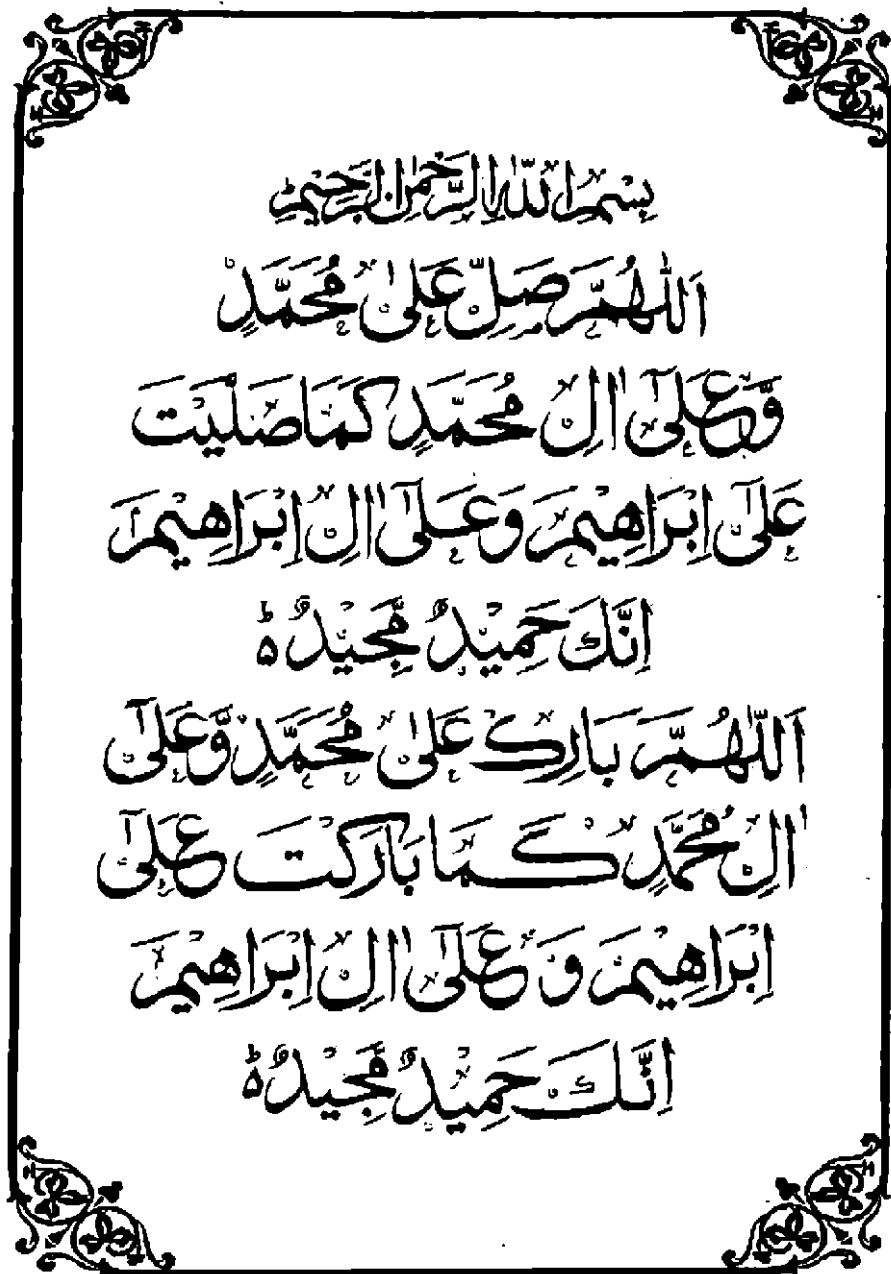 بِسْمِ اللّٰهِ الرَّحْمٰنِ الرَّحِيْمِ ط
اَللّٰهُمَّ صَلِّ عَلٰى مُحَمَّدٍ
وَّعَلٰٓى اٰلِ مُحَمَّدٍ كَمَا صَلَّيْتَ
عَلٰٓى اِبْرَاهِيْمَ وَعَلٰٓى اٰلِ اِبْرَاهِيْمَ
اِنَّكَ حَمِيْدٌ مَّجِيْدٌ ه ط
اَللّٰهُمَّ بَارِكْ عَلٰى مُحَمَّدٍ وَّعَلٰٓى
اٰلِ مُحَمَّدٍ كَمَا بَارَكْتَ عَلٰٓى
اِبْرَاهِيْمَ وَ عَلٰٓى اٰلِ اِبْرَاهِيْمَ
اِنَّكَ حَمِيْدٌ مَّجِيْدٌ ه ط